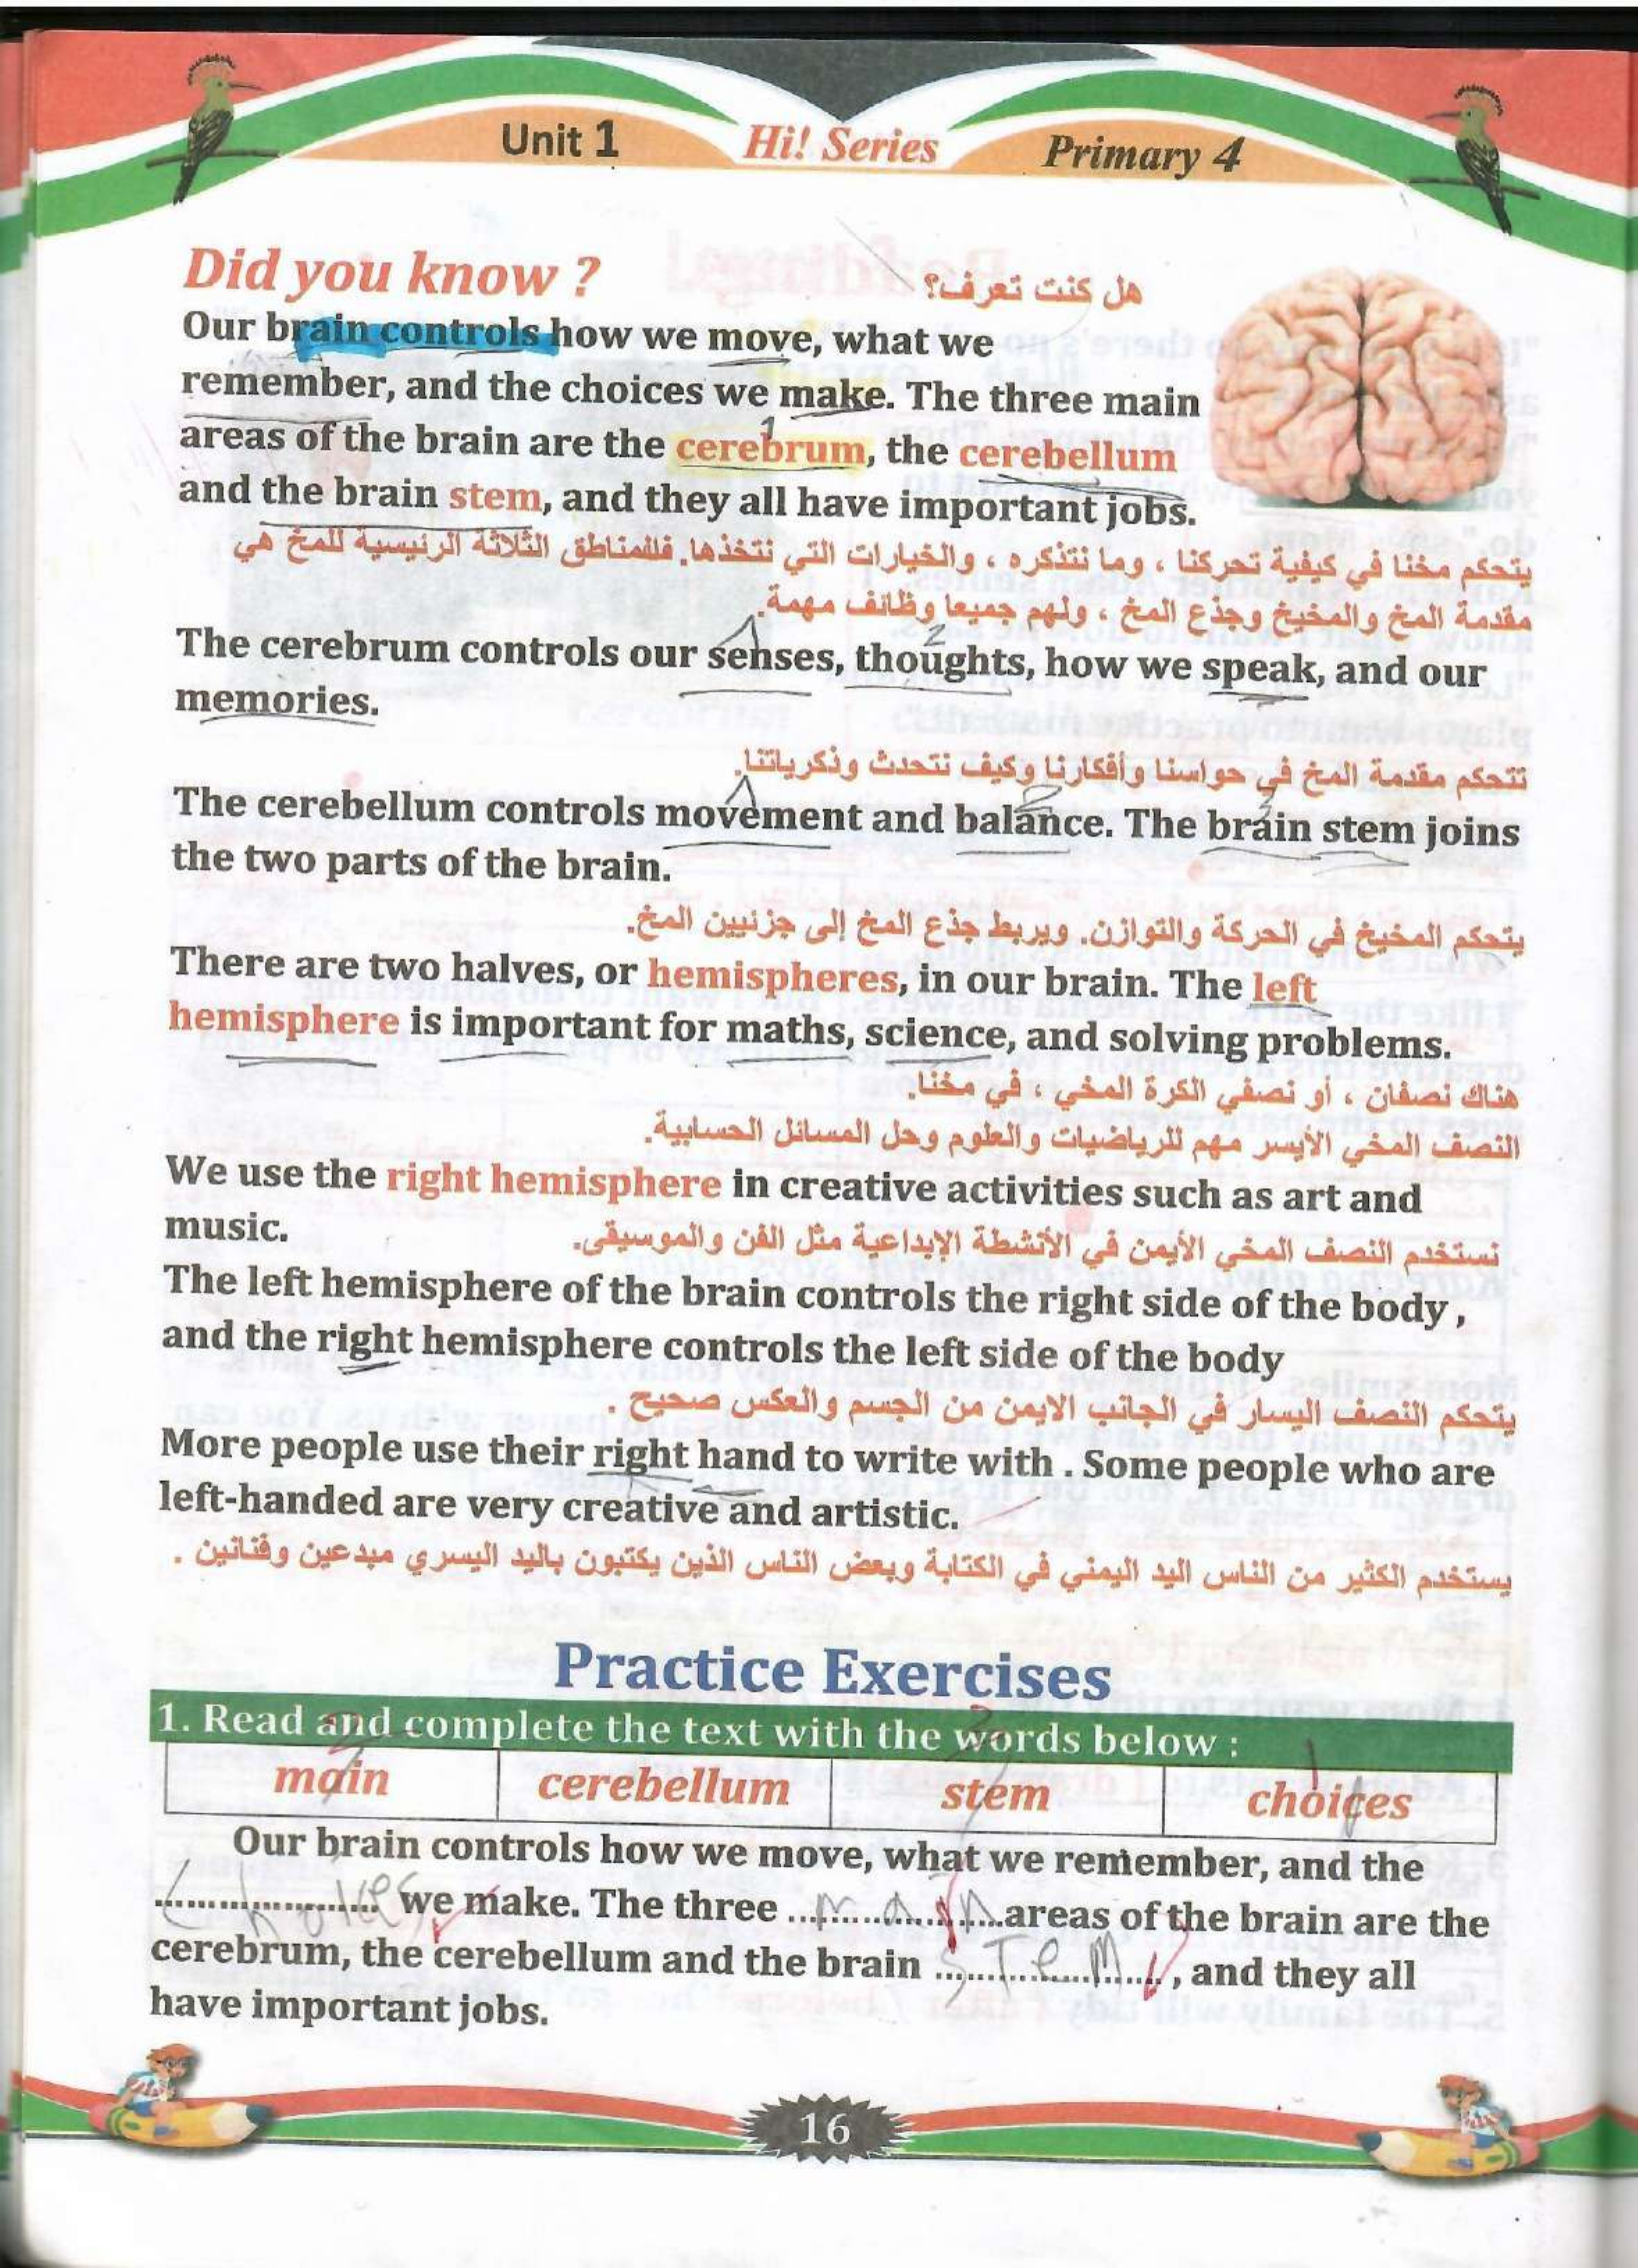 Unit 1 Hi! Series Primary 4
Did you know ? هل كنت تعرف؟
Our brain controls how we move, what we
remember, and the choices we make. The three main
1
areas of the brain are the cerebrum, the cerebellum
and the brain stem, and they all have important jobs.
يتحكم مخنا في كيفية تحركنا ، وما نتذكره ، والخيارات التي نتخذها. فللمناطق الثلاثة الرئيسية للمخ هي
مقدمة المخ والمخيخ وجذع المخ ، ولهم جميعا وظائف مهمة.
1 2
The cerebrum controls our senses, thoughts, how we speak, and our
memories.
تتحكم مقدمة المخ في حواسنا وأفكارنا وكيف نتحدث وذكرياتنا.
1 2 3
The cerebellum controls movement and balance. The brain stem joins
the two parts of the brain.
يتحكم المخيخ في الحركة والتوازن. ويربط جذع المخ إلى جزئيين المخ.
There are two halves, or hemispheres, in our brain. The left
hemisphere is important for maths, science, and solving problems.
هناك نصفان ، أو نصفي الكرة المخي ، في مخنا.
النصف المخي الأيسر مهم للرياضيات والعلوم وحل المسائل الحسابية.
We use the right hemisphere in creative activities such as art and
music. نستخدم النصف المخي الأيمن في الأنشطة الإبداعية مثل الفن والموسيقى.
The left hemisphere of the brain controls the right side of the body ,
and the right hemisphere controls the left side of the body
يتحكم النصف اليسار في الجانب الايمن من الجسم والعكس صحيح .
More people use their right hand to write with . Some people who are
left-handed are very creative and artistic.
يستخدم الكثير من الناس اليد اليمني في الكتابة وبعض الناس الذين يكتبون باليد اليسري مبدعين وفنانين .
Practice Exercises
1. Read and complete the text with the words below :
2 3 1
main cerebellum stem choices
Our brain controls how we move, what we remember, and the
choices we make. The three main areas of the brain are the
cerebrum, the cerebellum and the brain sTem , and they all
have important jobs.
16